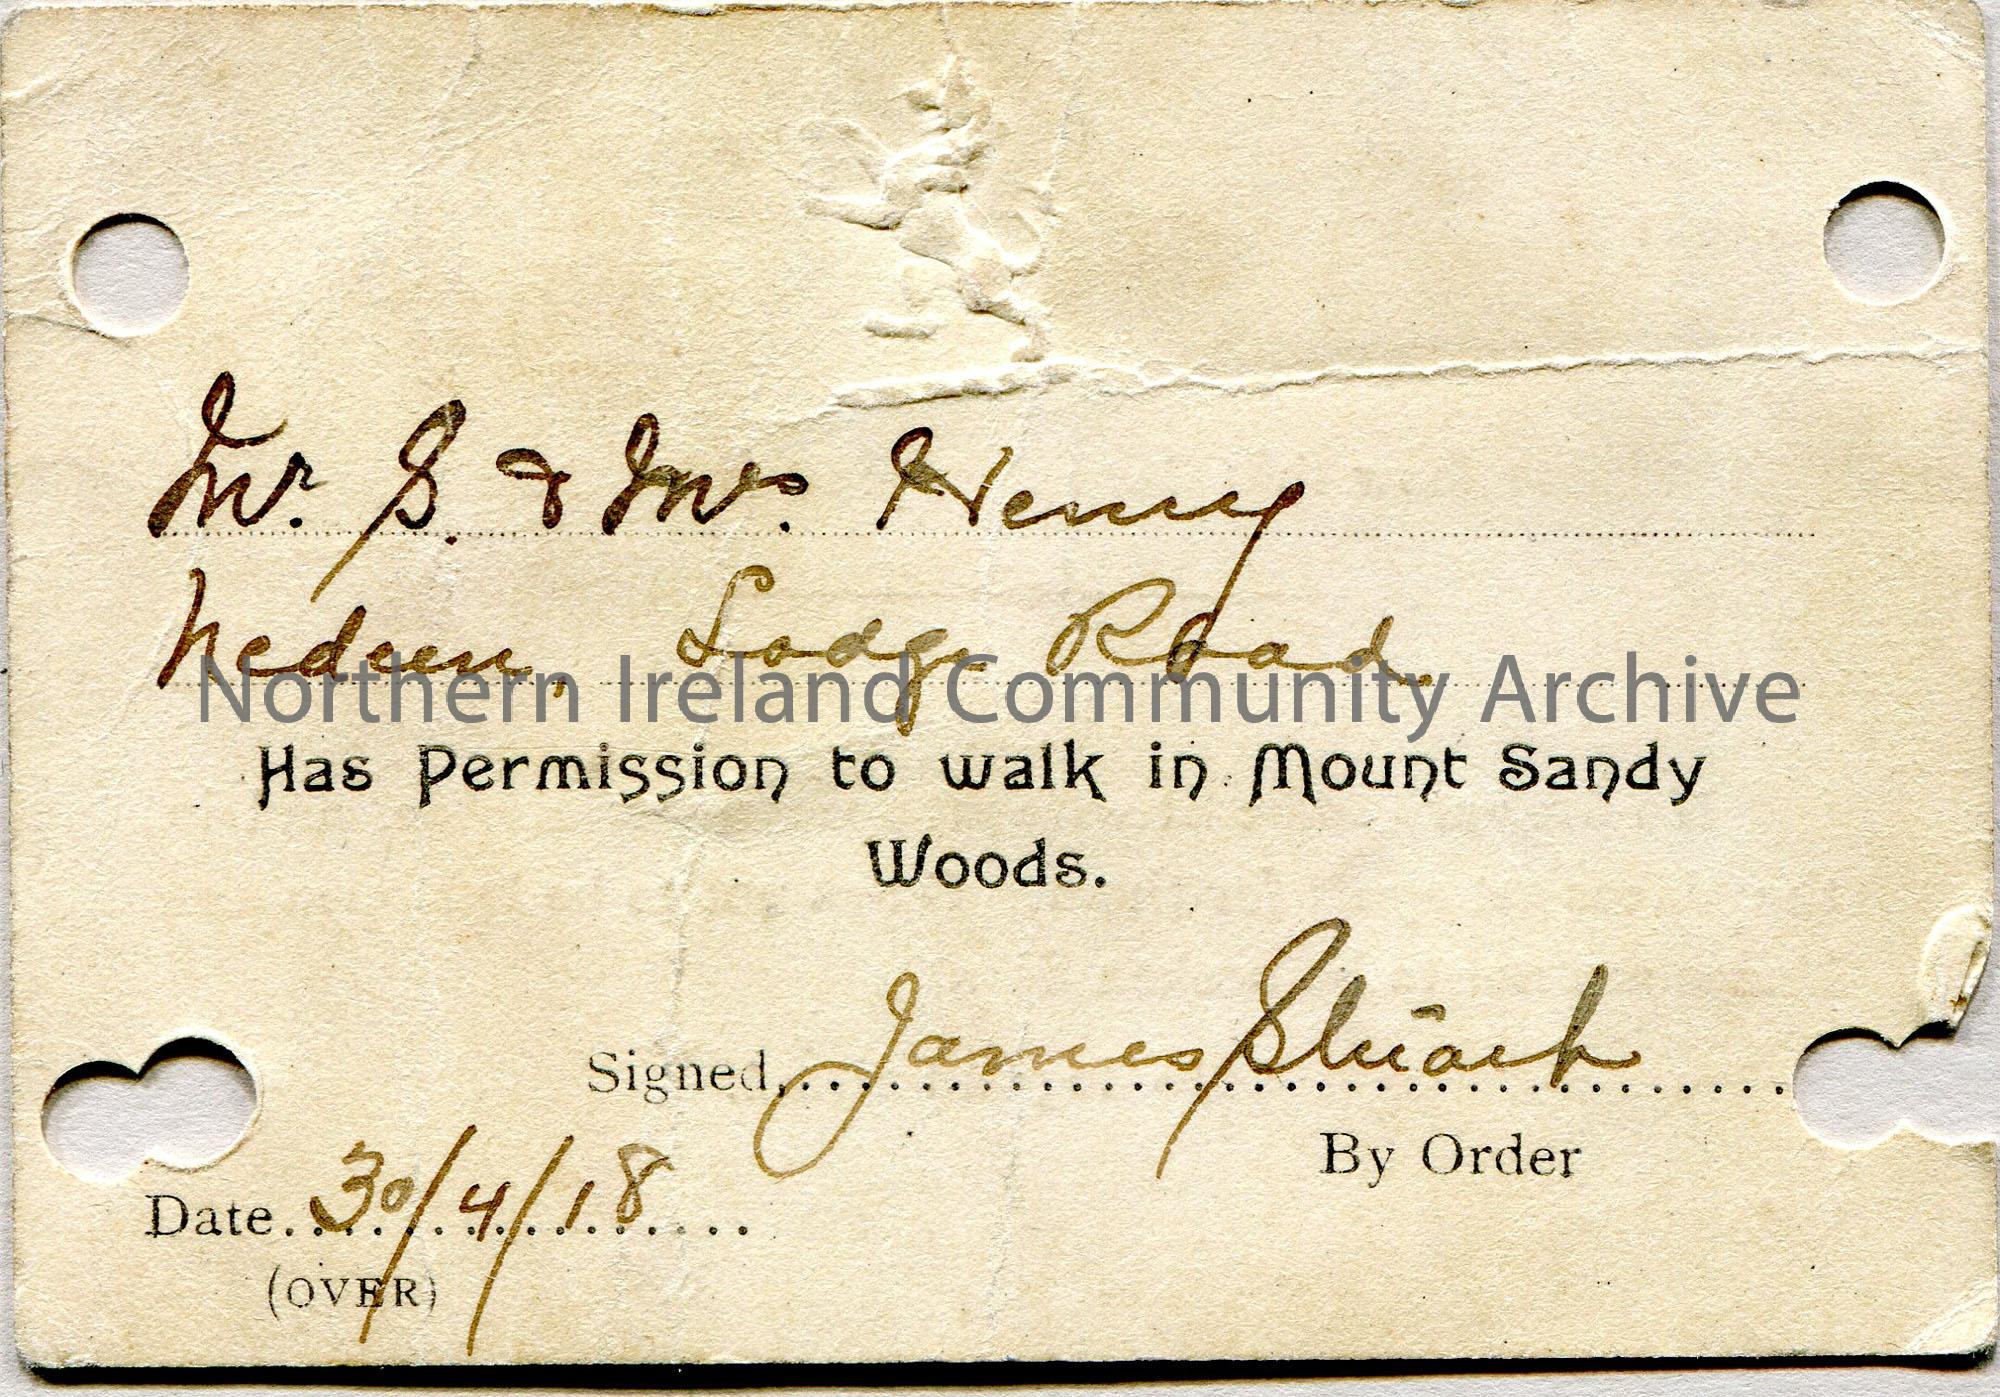 Mr. S. & Mrs. Henry
Nedeen, Lodge Road.
Northern Ireland Community Archive
Has Permission to walk in Mount Sandy
Woods.
Signed James
By Order
Date 30/4/18
(OVER)